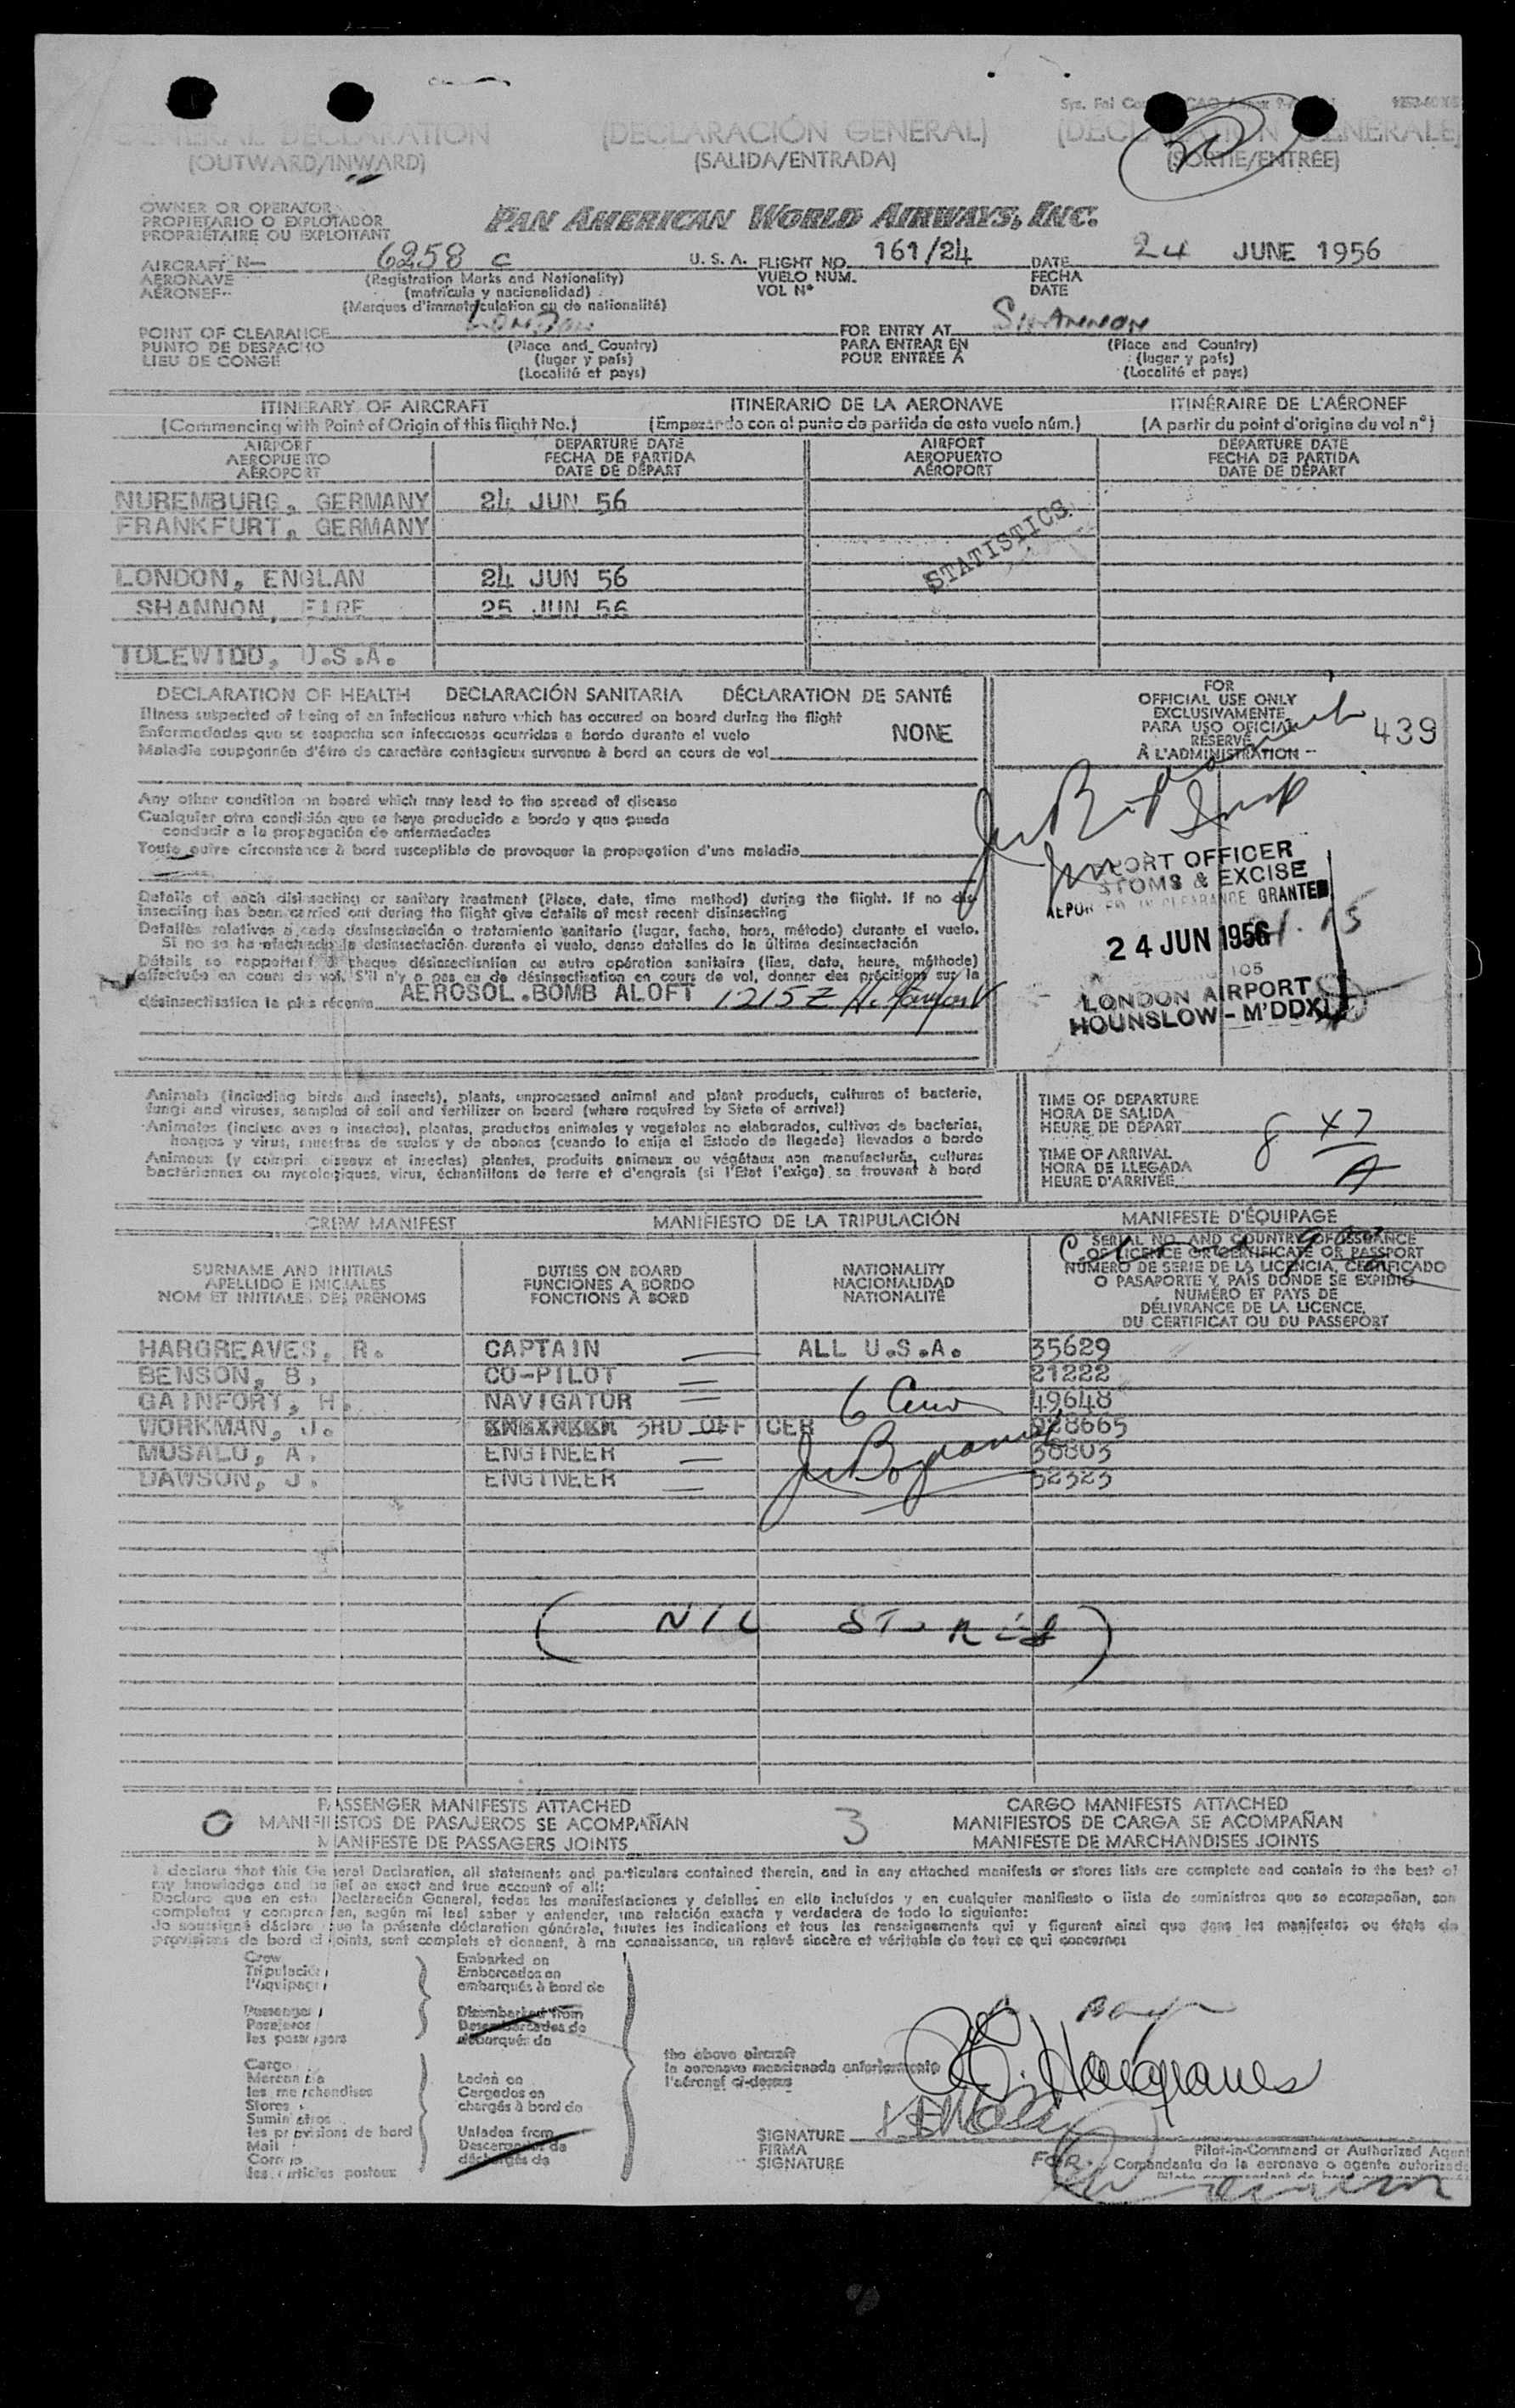 GENERAL DECLARATION (DECLARACIÓN GENERAL) (DECLARATION GÉNÉRALE)
(OUTWARD/INWARD) (SALIDA/ENTRADA) (SORTIE/ENTRÉE)
OWNER OR OPERATOR
PROPIETARIO O EXPLOTADOR
PROPRIÉTAIRE OU EXPLOITANT
PAN AMERICAN WORLD AIRWAYS, INC.
AIRCRAFT N— 6258 C U.S.A. FLIGHT NO. 161/24 DATE 24 JUNE 1956
AERONAVE (Registration Marks and Nationality) VUELO NUM. FECHA
AÉRONEF (matrícula y nacionalidad) VOL Nº DATE
(Marques d'immatriculation ou de nationalité)
POINT OF CLEARANCE LONDON FOR ENTRY AT SHANNON
PUNTO DE DESPACHO (Place and Country) PARA ENTRAR EN (Place and Country)
LIEU DE CONGÉ (lugar y país) POUR ENTRÉE À (lugar y país)
(Localité et pays) (Localité et pays)
ITINERARY OF AIRCRAFT ITINERARIO DE LA AERONAVE ITINÉRAIRE DE L'AÉRONEF
(Commencing with Point of Origin of this flight No.) (Empezando con el punto de partida de este vuelo núm.) (A partir du point d'origine du vol nº)
AIRPORT DEPARTURE DATE AIRPORT DEPARTURE DATE
AEROPUERTO FECHA DE PARTIDA AEROPUERTO FECHA DE PARTIDA
AÉROPORT DATE DE DÉPART AÉROPORT DATE DE DÉPART
NUREMBURG, GERMANY 24 JUN 56
FRANKFURT, GERMANY
STATISTICS
LONDON, ENGLAN 24 JUN 56
SHANNON, EIRE 25 JUN 56
IDLEWIDD, U.S.A.
DECLARATION OF HEALTH DECLARACIÓN SANITARIA DÉCLARATION DE SANTÉ
Illness suspected of being of an infectious nature which has occured on board during the flight
Enfermedades que se sospecha son infecciosas ocurridas a bordo durante el vuelo NONE
Maladie soupçonnée d'être de caractère contagieux survenue à bord en cours de vol
FOR
OFFICIAL USE ONLY
EXCLUSIVAMENTE
PARA USO OFICIAL 439
RÉSERVÉ
À L'ADMINISTRATION
Any other condition on board which may lead to the spread of disease
Cualquier otra condición que se haya producido a bordo y que pueda
conducir a la propagación de enfermedades
Toute autre circonstance à bord susceptible de provoquer la propagation d'une maladie
Details of each disinsecting or sanitary treatment (Place, date, time method) during the flight. If no dis-
insecting has been carried out during the flight give details of most recent disinsecting
Detalles relativos a cada desinsectación o tratamiento sanitario (lugar, fecha, hora, método) durante el vuelo.
Si no se ha efectuado la desinsectación durante el vuelo, dense detalles de la última desinsectación
Détails se rapportant à chaque désinsectisation ou autre opération sanitaire (lieu, date, heure, méthode)
effectuée en cours de vol. S'il n'y a pas eu de désinsectisation en cours de vol, donner des précisions sur la
désinsectisation la plus récente AEROSOL.BOMB ALOFT 1215Z
PORT OFFICER
STOMS & EXCISE
CLEARANCE GRANTED
24 JUN 1956
105
LONDON AIRPORT
HOUNSLOW - M'DDX
Animals (including birds and insects), plants, unprocessed animal and plant products, cultures of bacteria,
fungi and viruses, samples of soil and fertilizer on board (where required by State of arrival)
Animales (incluso aves e insectos), plantas, productos animales y vegetales no elaborados, cultivos de bacterias,
hongos y virus, muestras de suelos y de abonos (cuando lo exija el Estado de llegada) llevados a bordo
Animaux (y compris oiseaux et insectes) plantes, produits animaux ou végétaux non manufacturés, cultures
bactériennes ou mycologiques, virus, échantillons de terre et d'engrais (si l'Etat l'exige) se trouvant à bord
TIME OF DEPARTURE
HORA DE SALIDA
HEURE DE DÉPART
TIME OF ARRIVAL
HORA DE LLEGADA
HEURE D'ARRIVÉE
CREW MANIFEST MANIFIESTO DE LA TRIPULACIÓN MANIFESTE D'ÉQUIPAGE
SURNAME AND INITIALS DUTIES ON BOARD NATIONALITY
APELLIDO E INICIALES FUNCIONES A BORDO NACIONALIDAD
NOM ET INITIALES DES PRÉNOMS FONCTIONS À BORD NATIONALITÉ
SERIAL NO. AND COUNTRY OF ISSUANCE
OF LICENCE OR CERTIFICATE OR PASSPORT
NÚMERO DE SERIE DE LA LICENCIA, CERTIFICADO
O PASAPORTE Y PAÍS DONDE SE EXPIDIÓ
NUMÉRO ET PAYS DE
DÉLIVRANCE DE LA LICENCE,
DU CERTIFICAT OU DU PASSEPORT
HARGREAVES, R. CAPTAIN ALL U.S.A. 35629
BENSON, B. CO-PILOT 21222
GAINFORT, H. NAVIGATOR 6 Crew 49648
WORKMAN, J. 3RD OFFICER 928665
MUSALO, A. ENGINEER 38803
DAWSON, J. ENGINEER 52323
(NIL STORES)
PASSENGER MANIFESTS ATTACHED CARGO MANIFESTS ATTACHED
0 MANIFIESTOS DE PASAJEROS SE ACOMPAÑAN 3 MANIFIESTOS DE CARGA SE ACOMPAÑAN
MANIFESTE DE PASSAGERS JOINTS MANIFESTE DE MARCHANDISES JOINTS
I declare that this General Declaration, all statements and particulars contained therein, and in any attached manifests or stores lists are complete and contain to the best of
my knowledge and belief an exact and true account of all:
Declaro que en esta Declaración General, todas las manifestaciones y detalles en ella incluídos y en cualquier manifiesto o lista de suministros que se acompañan, son
completos y comprenden, según mi leal saber y entender, una relación exacta y verdadera de todo lo siguiente:
Je soussigné déclare que la présente déclaration générale, toutes les indications et tous les renseignements qui y figurent ainsi que dans les manifestes ou états de
provisions de bord ci joints, sont complets et donnent, à ma connaissance, un relevé sincère et véritable de tout ce qui concerne:
Crew Embarked on
Tripulación Embarcados en
l'équipage embarqués à bord de
Passengers Disembarked from
Pasajeros Desembarcados de
les passagers débarqués de
Cargo
Mercancía Laden on
les marchandises Cargados en
Stores chargés à bord de
Suministros
les provisions de bord Unladen from
Mail Descargados de
Correo déchargés de
les articles postaux
the above aircraft
la aeronave mencionada anteriormente
l'aéronef ci-dessus
SIGNATURE
FIRMA
SIGNATURE
FOR
Pilot-in-Command or Authorized Agent
Comandante de la aeronave o agente autorizado